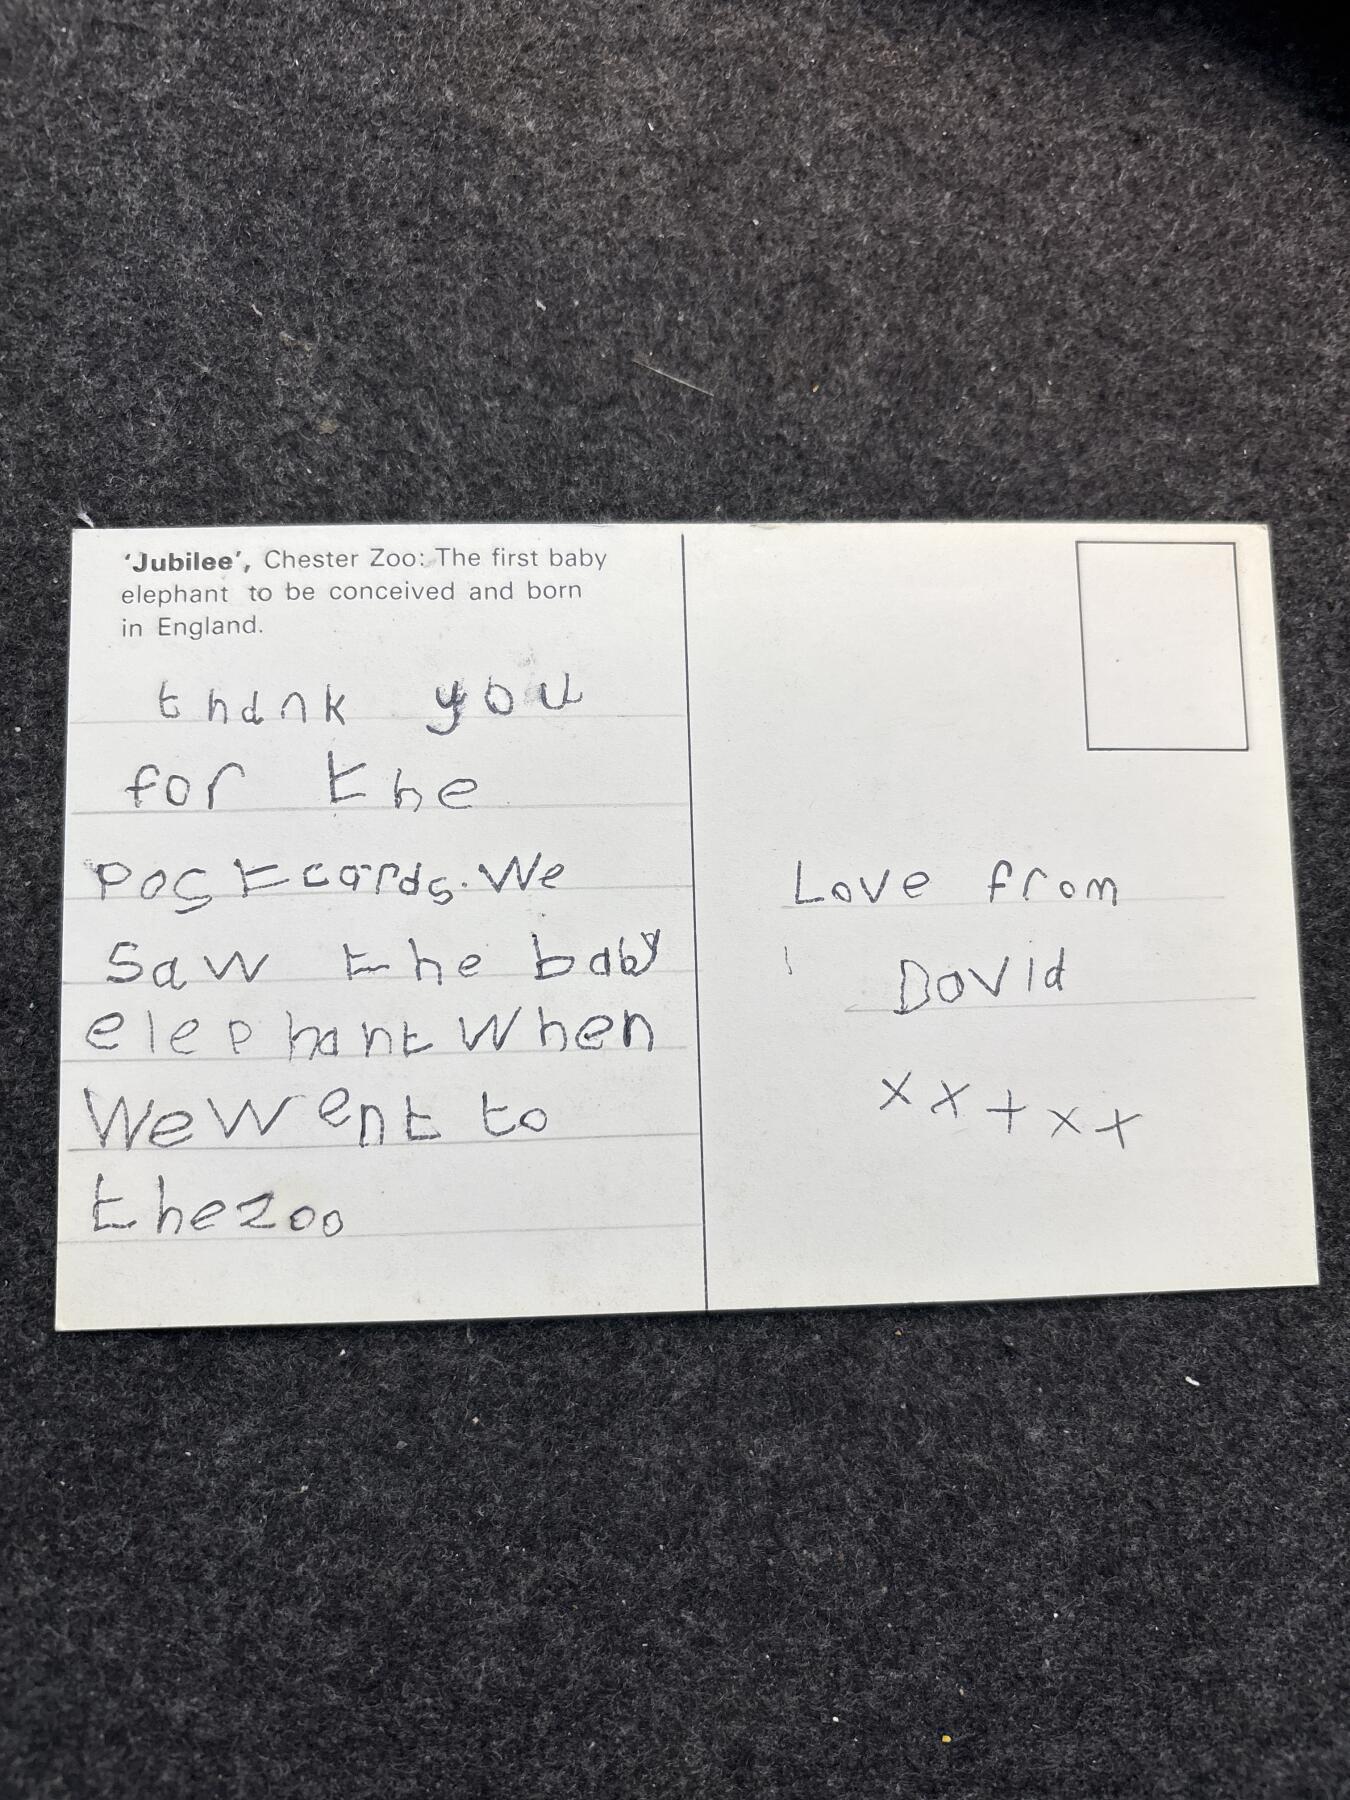 'Jubilee', Chester Zoo: The first baby
elephant to be conceived and born
in England.
thank you
for the
Postcards. We
Saw the baby
elephant When
We Went to
the zoo
Love from
David
x x + x +